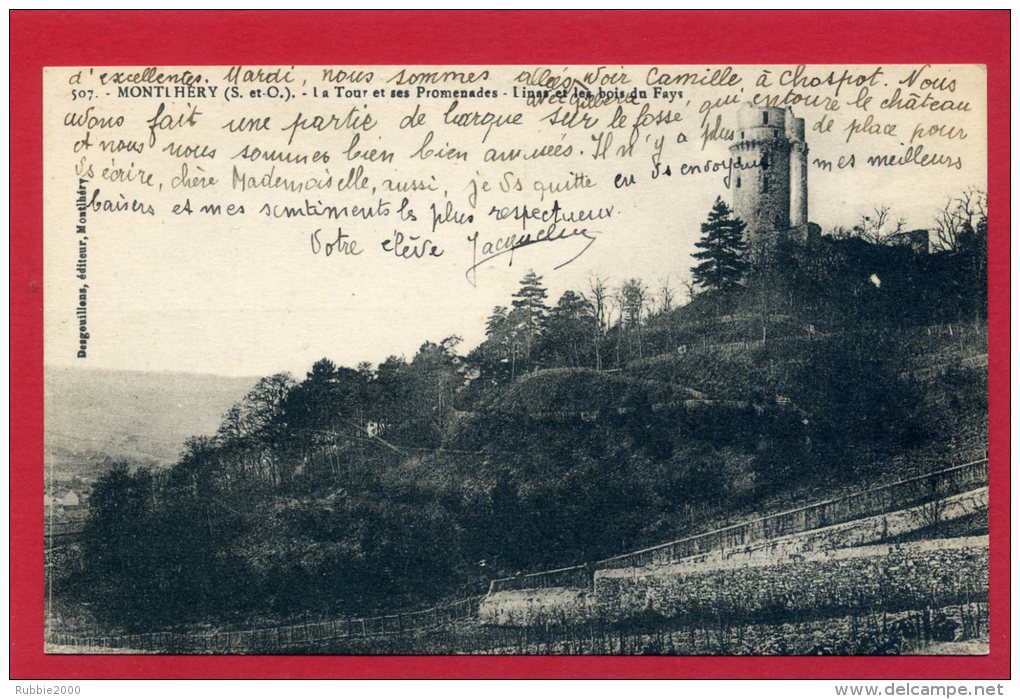 d'excellentes. Mardi, nous sommes allés voir Camille à Chospot. Nous
507. - MONTLHÉRY (S. et O.). - La Tour et ses Promenades - Linas et les bois du Fays
avons fait une partie de barque sur le fossé qui entoure le château
et nous nous sommes bien bien amusés. Il n'y a plus de place pour
Vs écrire, chère Mademoiselle, aussi, je Vs quitte en Vs envoyant mes meilleurs
baisers et mes sentiments les plus respectueux.
Votre élève Jacqueline
Desgouillons, éditeur, Montlhéry
Rubbie2000
www.delcampe.net